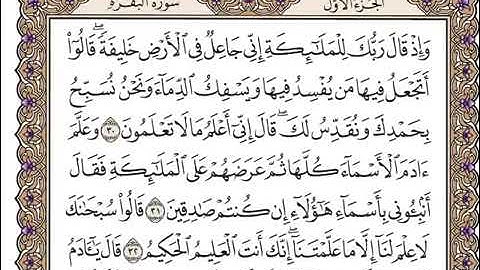 الجزء الأول سورة البقرة
وَإِذۡ قَالَ رَبُّكَ لِلۡمَلَٰٓئِكَةِ إِنِّي جَاعِلٞ فِي ٱلۡأَرۡضِ خَلِيفَةٗۖ قَالُوٓاْ
أَتَجۡعَلُ فِيهَا مَن يُفۡسِدُ فِيهَا وَيَسۡفِكُ ٱلدِّمَآءَ وَنَحۡنُ نُسَبِّحُ
بِحَمۡدِكَ وَنُقَدِّسُ لَكَۖ قَالَ إِنِّيٓ أَعۡلَمُ مَا لَا تَعۡلَمُونَ ٣٠ وَعَلَّمَ
ءَادَمَ ٱلۡأَسۡمَآءَ كُلَّهَا ثُمَّ عَرَضَهُمۡ عَلَى ٱلۡمَلَٰٓئِكَةِ فَقَالَ
أَنۢبِـُٔونِي بِأَسۡمَآءِ هَٰٓؤُلَآءِ إِن كُنتُمۡ صَٰدِقِينَ ٣١ قَالُواْ سُبۡحَٰنَكَ
لَا عِلۡمَ لَنَآ إِلَّا مَا عَلَّمۡتَنَآۖ إِنَّكَ أَنتَ ٱلۡعَلِيمُ ٱلۡحَكِيمُ ٣٢ قَالَ يَٰٓـَٔادَمُ